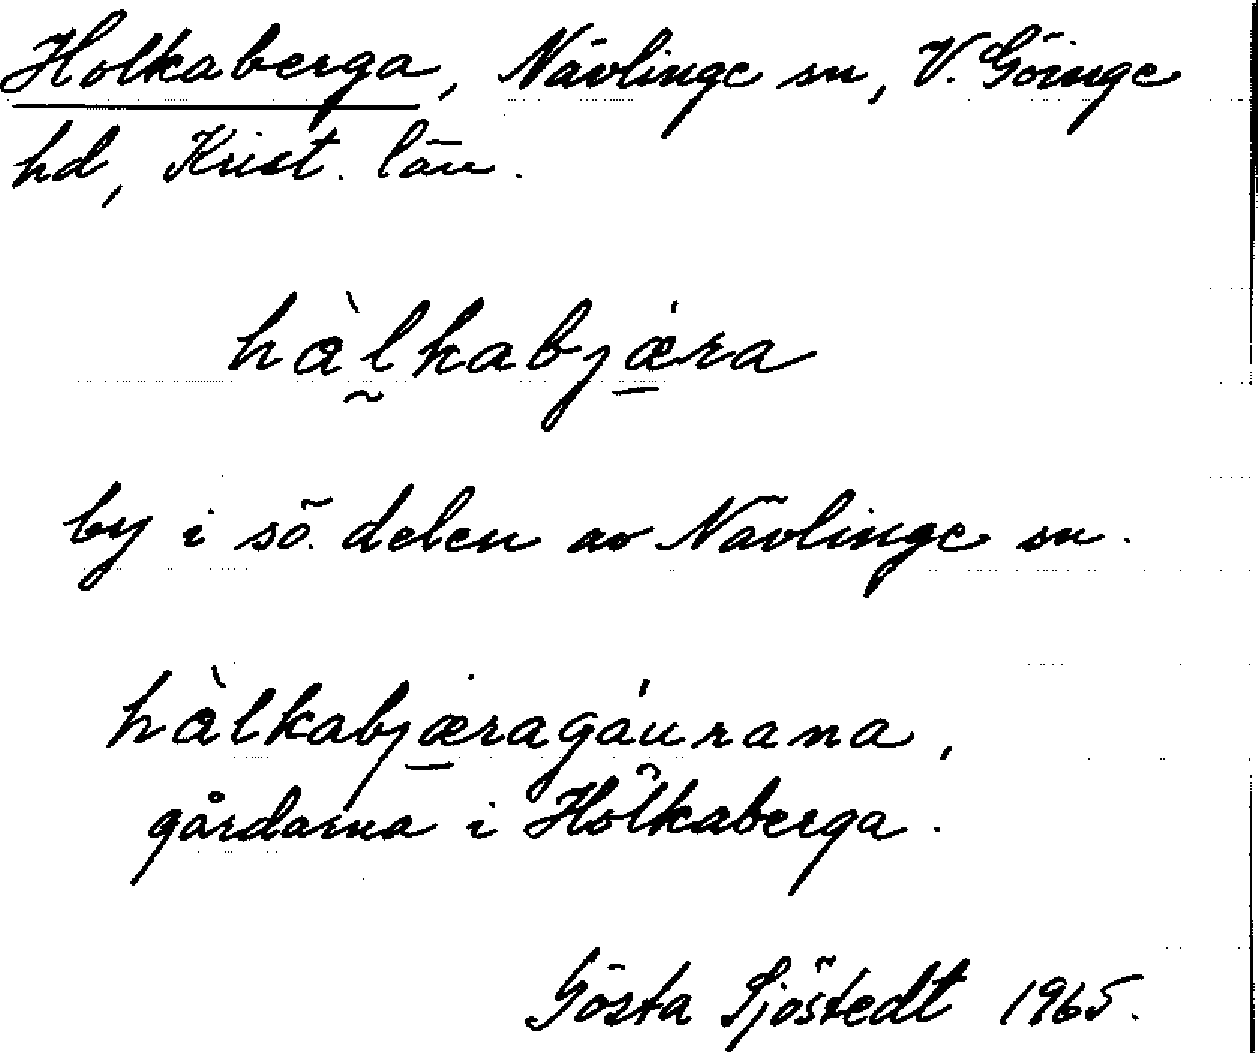 Holkaberga, Nävlinge sn, V. Göinge
hd, Krist. län.
hàl̰kabjǽ̲ra
by i sö. delen av Nävlinge sn.
hàlkabjæ̲ragáu̯rana,
gårdarna i Holkaberga.
Gösta Sjöstedt 1965.